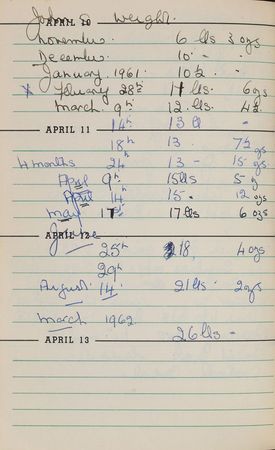 John's weight.
APRIL 10
November. 6 lbs 3 ozs
December. 10 -
January. 1961. 10½ .
x February 28th 11 lbs. 6ozs
March. 9th 12. lbs. 4½
APRIL 11
14th 13 lb -
18th 13. 7½ ozs
4 months 24th 13 - 15 ozs.
April 9th 15lbs 5
April 14th 15. 12 ozs
May 17th 17 lbs 6 ozs
APRIL 12
June
25th 18, 4 ozs
29th
August. 14. 21 lbs. 2ozs
March 1962.
26 lbs -
APRIL 13